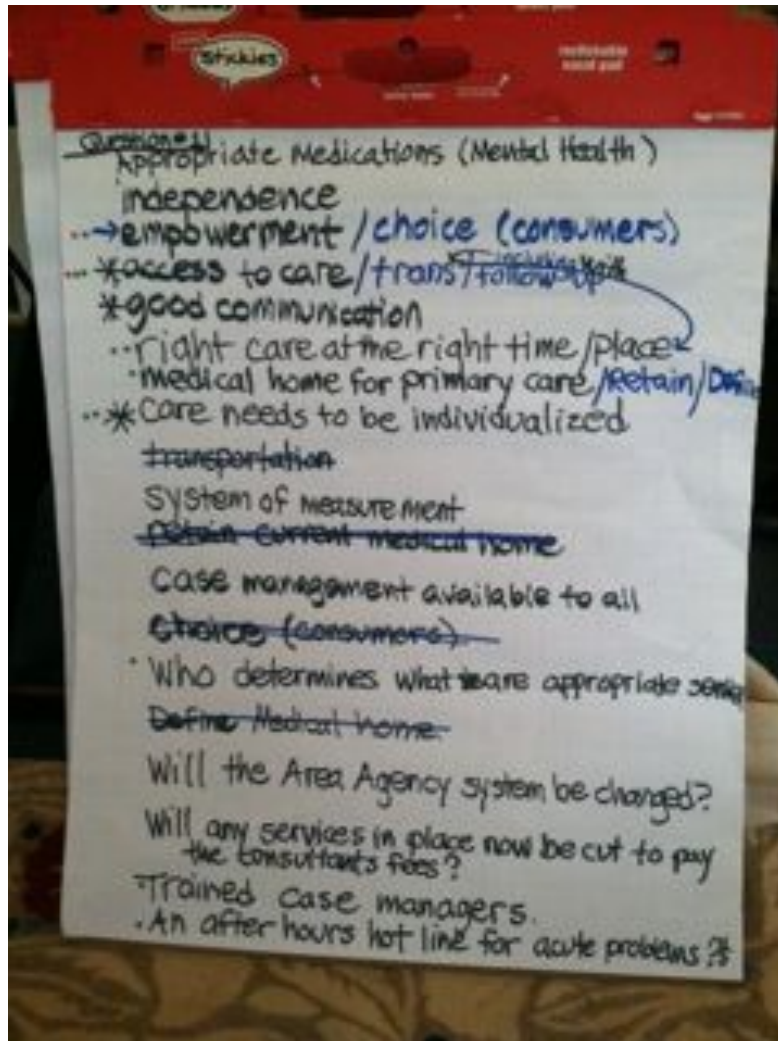 stickies
Question #1
Appropriate Medications (Mental Health)
independence
→ empowerment / choice (consumers)
* access to care / trans / follow up
* good communication
right care at the right time / place
medical home for primary care / Retain / Define
* care needs to be individualized
transportation
system of measurement
Retain current medical home
case management available to all
Choice (consumers)
Who determines what are appropriate
Define Medical home
Will the Area Agency system be changed?
Will any services in place now be cut to pay
the consultants fees?
Trained case managers.
An after hours hot line for acute problems?